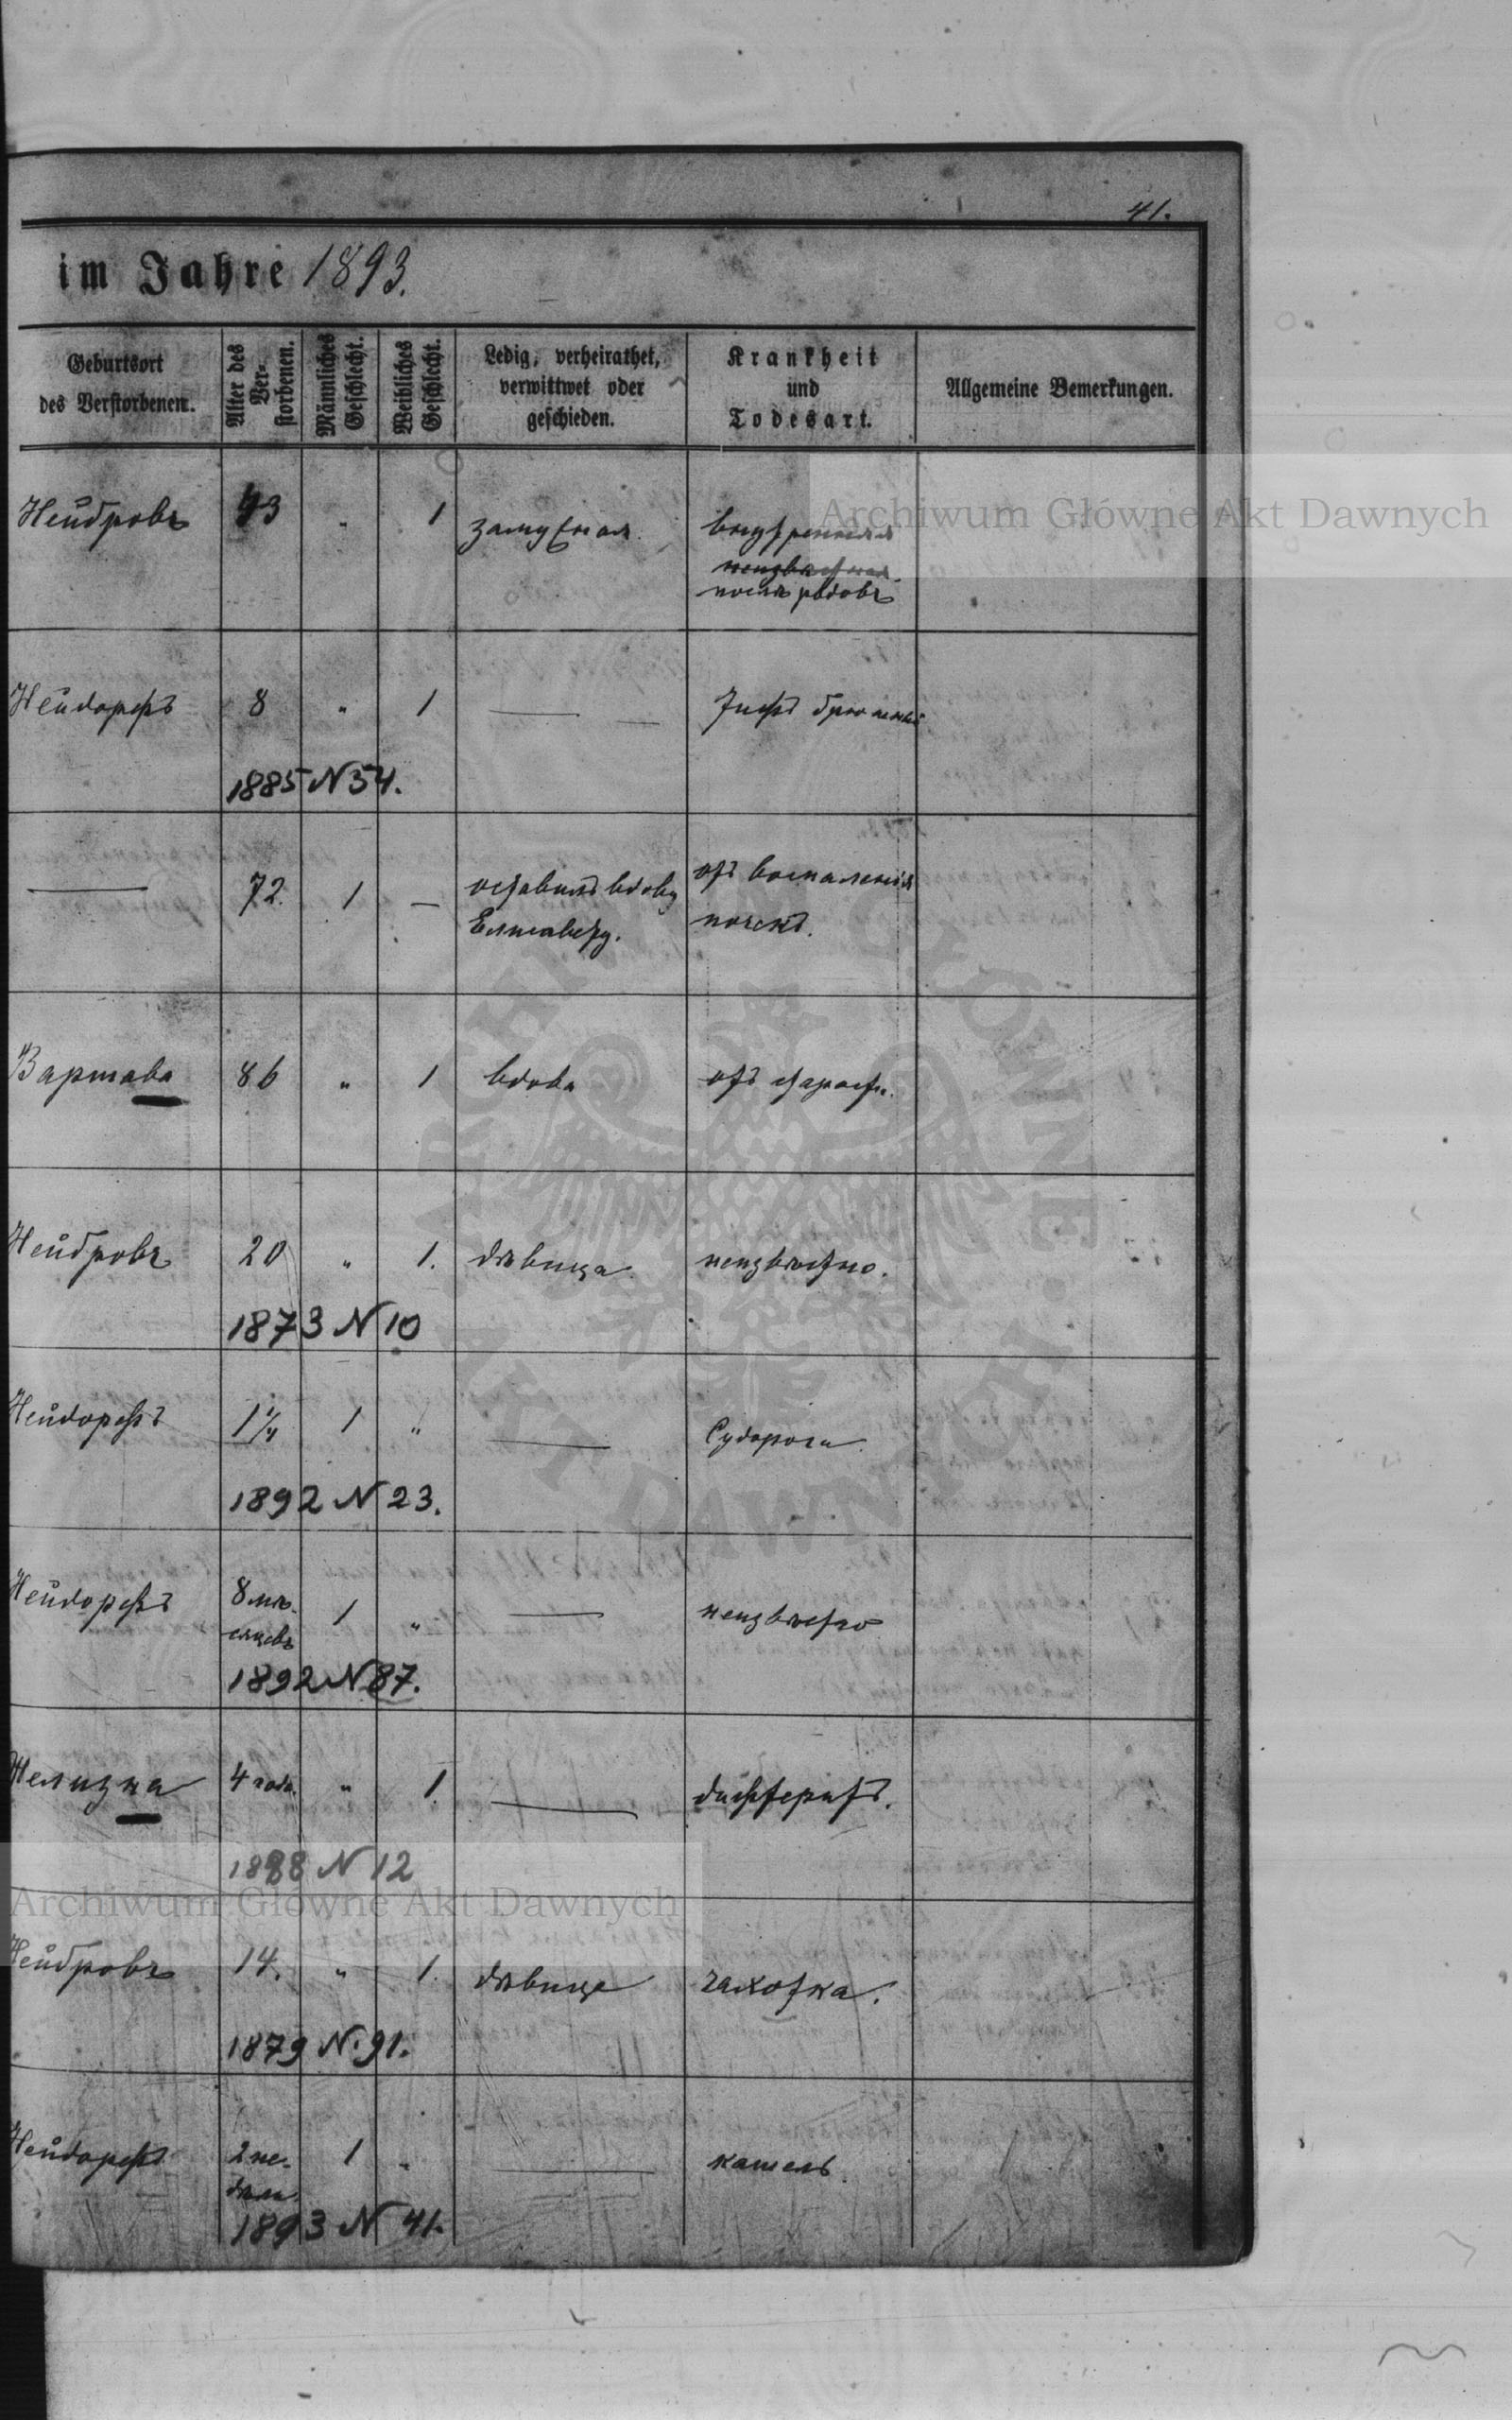 41.
im Jahre 1893.
Geburtsort
des Verstorbenen.
Alter des
Ver-
storbenen.
Männliches
Geschlecht.
Weibliches
Geschlecht.
Ledig, verheirathet,
verwittwet oder
geschieden.
Krankheit
und
Todesart.
Allgemeine Bemerkungen.
Нейдровъ 43 " 1 замужная внутренняя
неизвѣстная
послѣ родовъ
Archiwum Główne Akt Dawnych
Нейдорфъ 8 " 1 — — Тифъ брюшный
1885 N 54.
— 72. 1 — оставилъ вдову отъ воспаленія
Елисавету. почекъ.
Варшава 86 " 1 вдова отъ старости.
Нейдровъ 20 " 1. дѣвица неизвѣстно.
1873 N 10
Нейдорфъ 1 1/4 1 " — Судороги
1892 N 23.
Нейдорфъ 8 мѣ- 1 " — неизвѣстно
сяцевъ
1892 N 87.
4 года. " 1. — дифтеритъ.
1888 N 12
Archiwum Główne Akt Dawnych
Нейдровъ 14. " 1. дѣвица чахотка.
1879 N. 91.
Нейдорфъ 2 не- 1 " — кашель.
дѣли
1893 N 41.
ARCHIWUM GŁÓWNE AKT DAWNYCH